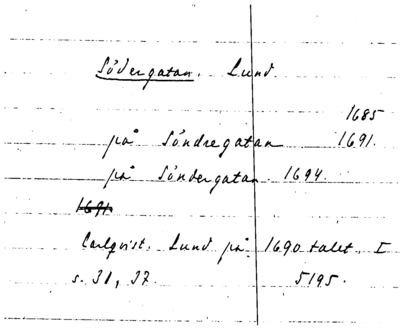 Södergatan. Lund
1685
på Söndregatan 1691.
på Söndergatan 1694.
1691
Carlqvist. Lund på 1690 talet. I
s. 31, 37. 5195.